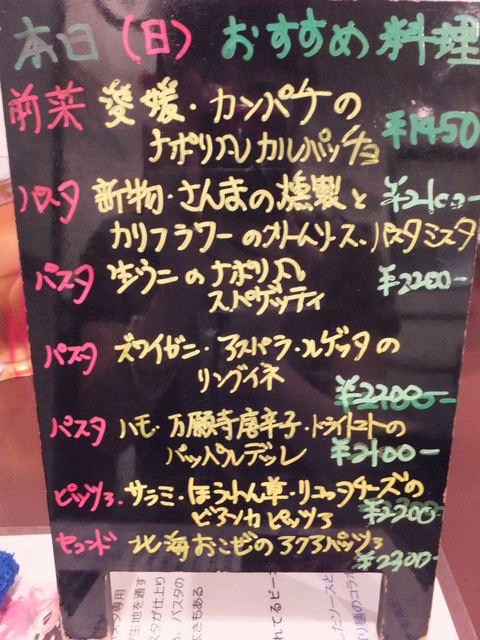 本日(日) おすすめ料理
前菜 愛媛・カンパチの
ナポリ風カルパッチョ ¥1450
パスタ 新物・さんまの燻製と ¥2100-
カリフラワーのクリームソース、パスタミスタ
パスタ 生ウニのナポリ風 ¥2200-
スパゲッティ
パスタ ズワイガニ・アスパラ・ルゲッタの
リングイネ ¥2200-
パスタ ハモ・万願寺唐辛子・ドライトマトの
パッパルデッレ ¥2100-
ピッツァ・サラミ・ほうれん草・リコッタチーズの
ビアンカピッツァ ¥2200-
セコンド 北海おこぜのアクアパッツァ
¥2300-